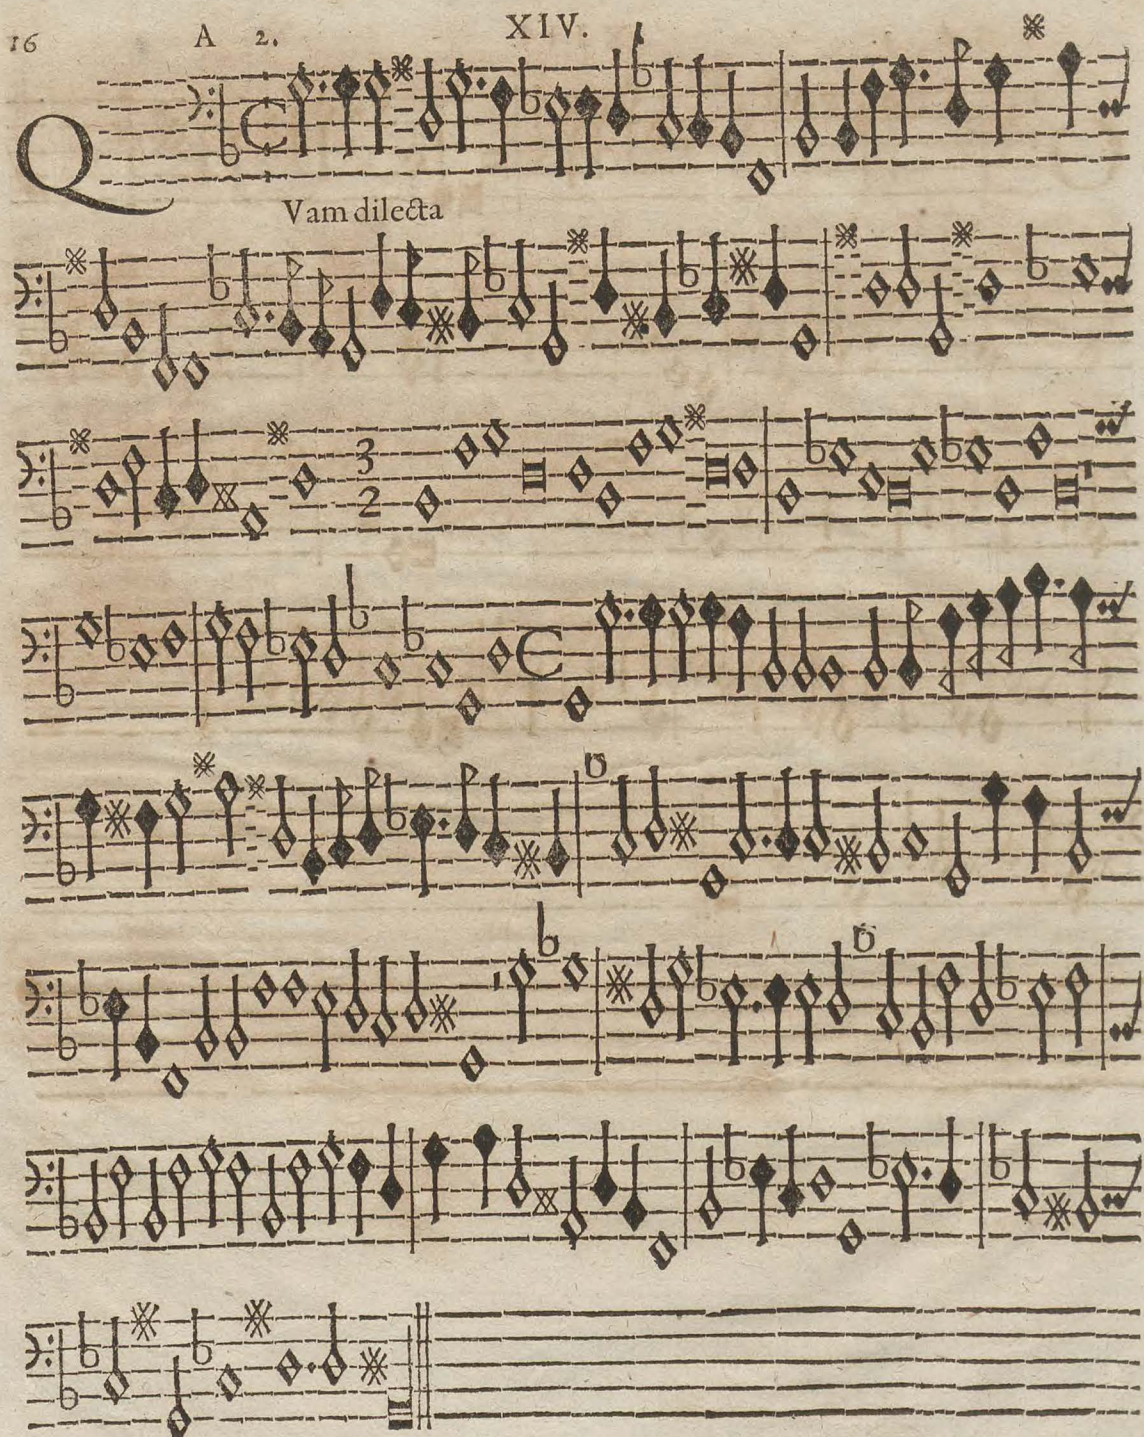 16 A 2. XIV.
QVam dilecta
3
2